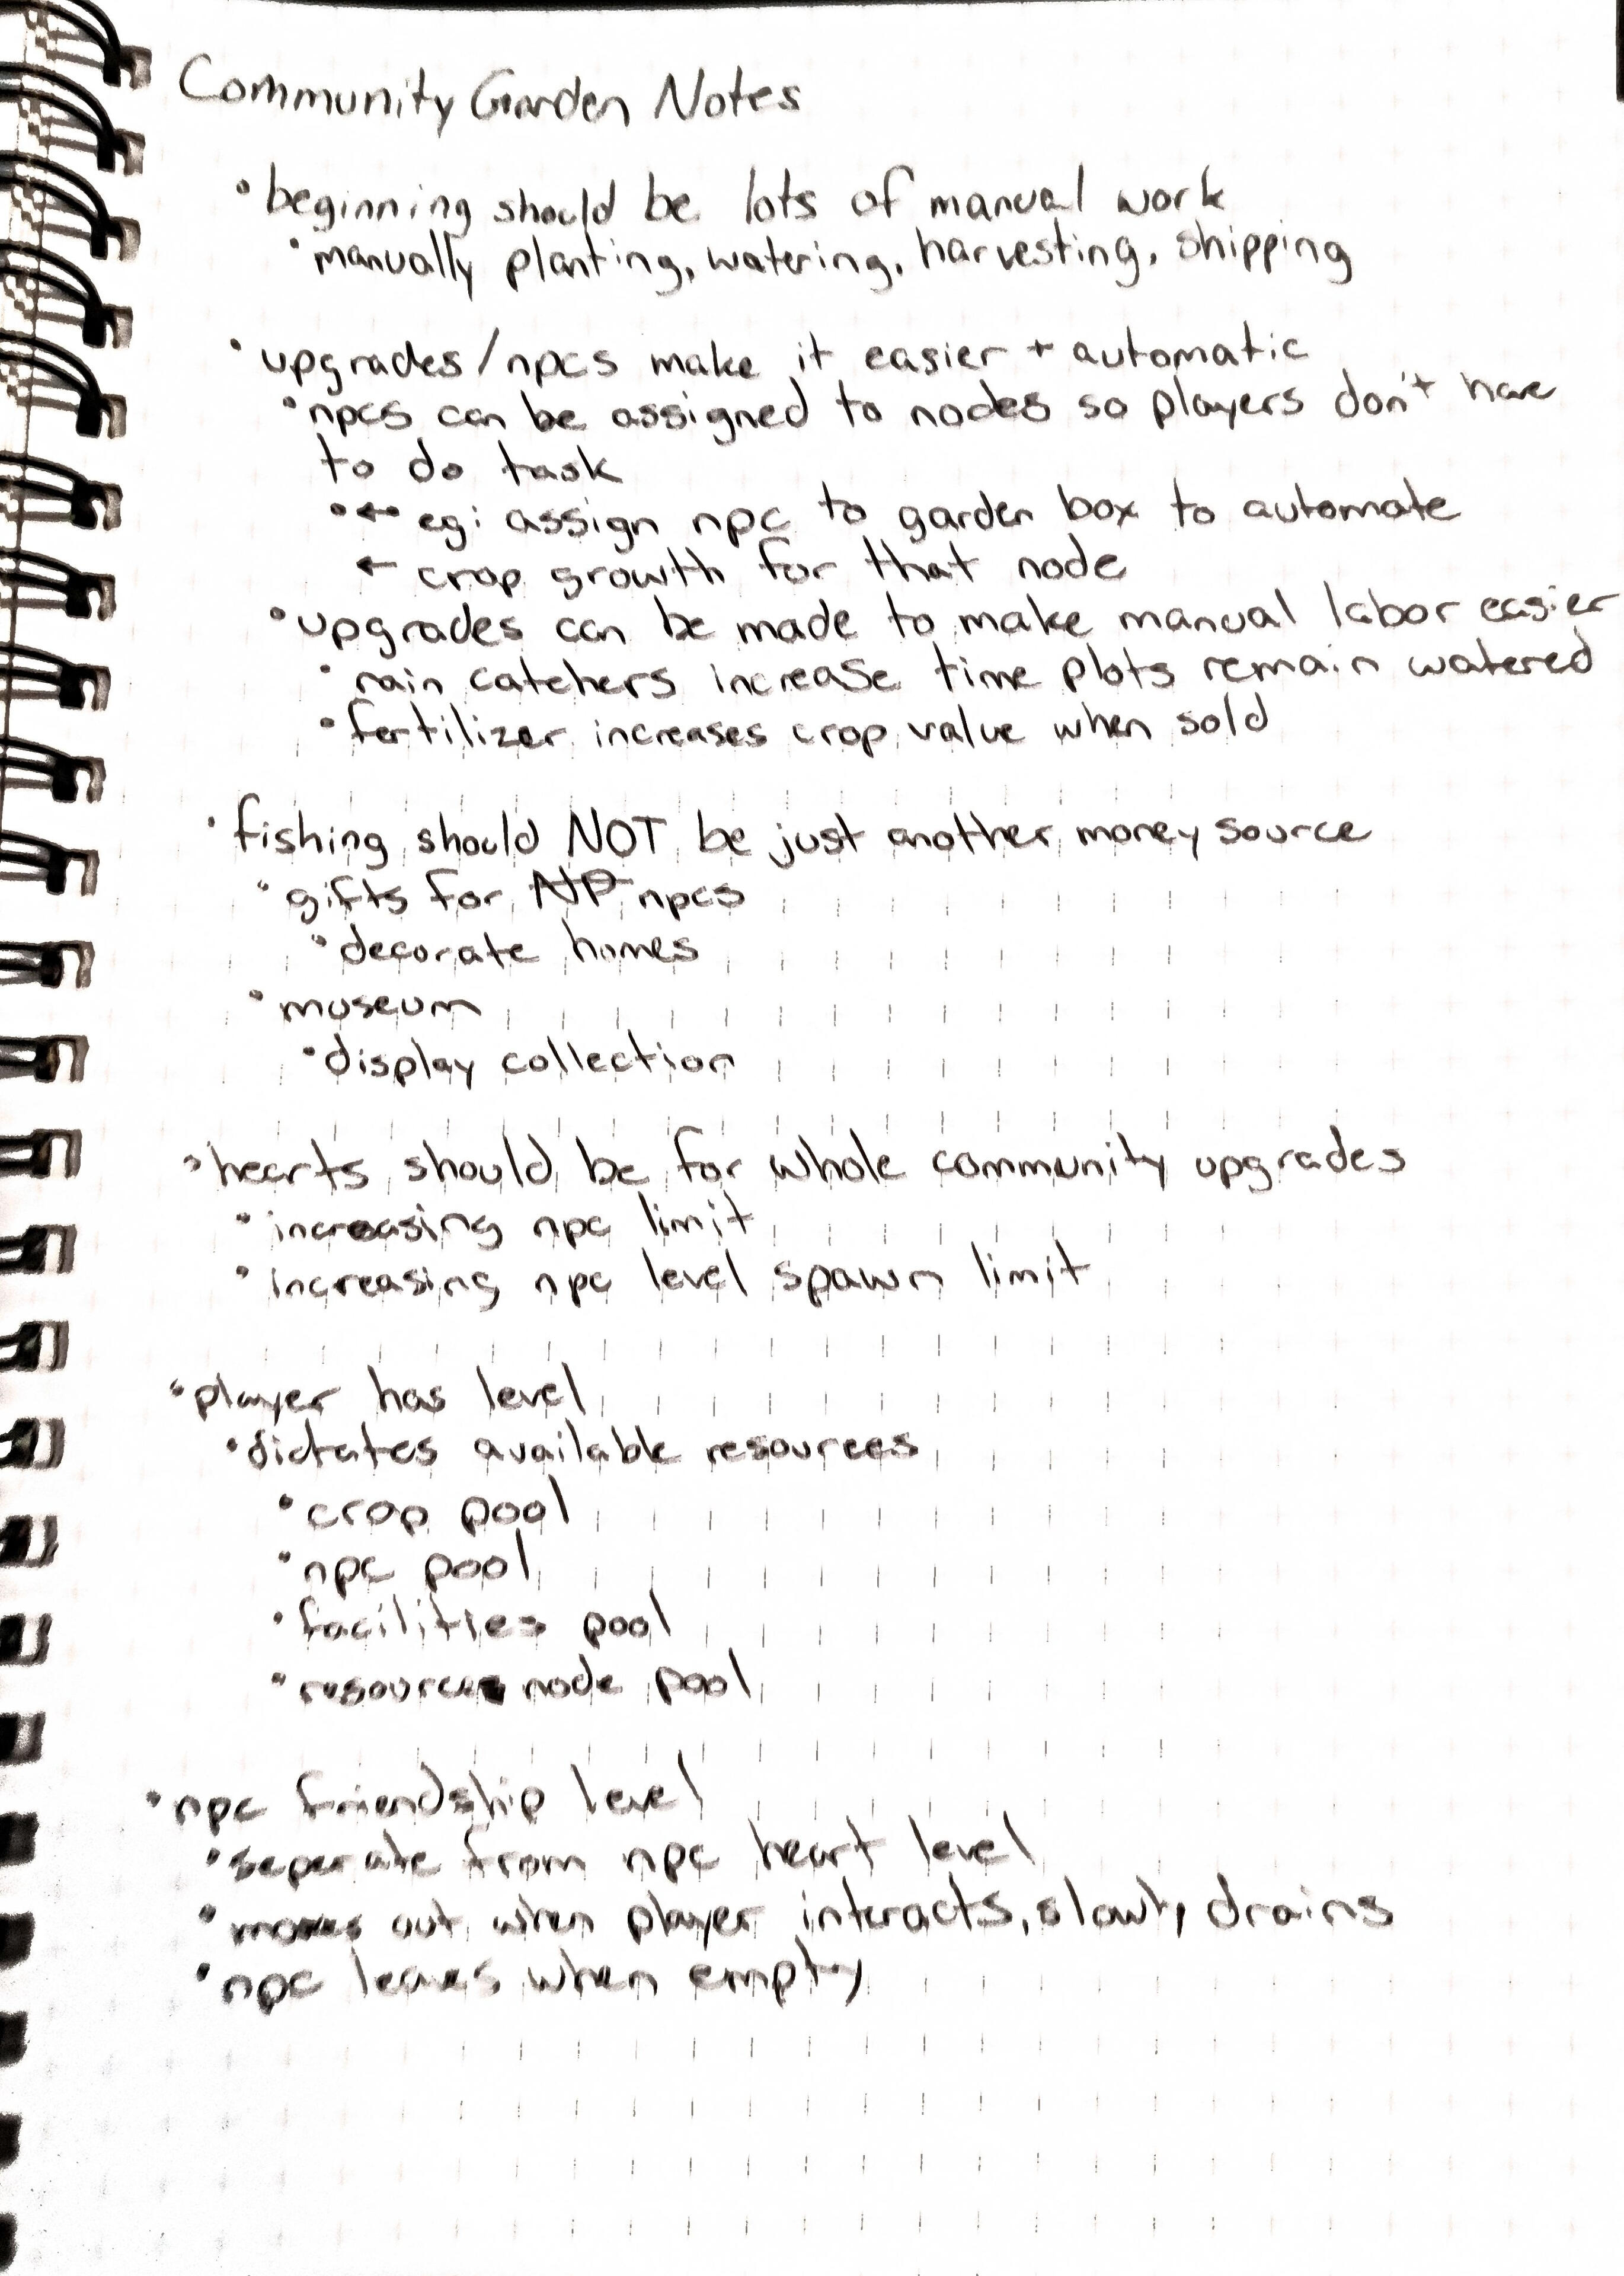 Community Garden Notes
• beginning should be lots of manual work
• manually planting, watering, harvesting, shipping
• upgrades/npcs make it easier + automatic
• npcs can be assigned to nodes so players don't have
to do task
• ← eg: assign npc to garden box to automate
← crop growth for that node
• upgrades can be made to make manual labor easier
• rain catchers increase time plots remain watered
• fertilizer increases crop value when sold
• fishing should NOT be just another money source
• gifts for NP npcs
• decorate homes
• museum
• display collection
• hearts should be for whole community upgrades
• increasing npc limit
• increasing npc level spawn limit
• player has level
• dictates available resources
• crop pool
• npc pool
• facilities pool
• resource node pool
• npc friendship level
• seperate from npc heart level
• maxes out when player interacts, slowly drains
• npc leaves when empty